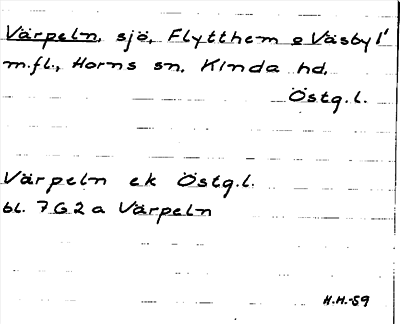 Värpeln, sjö, Flytthem o Väsby 1'
m.fl., Horns sn, Kinda hd,
Östg.l.
Värpeln ek Östg.l.
bl. 7G2a Värpeln
H.H.-59